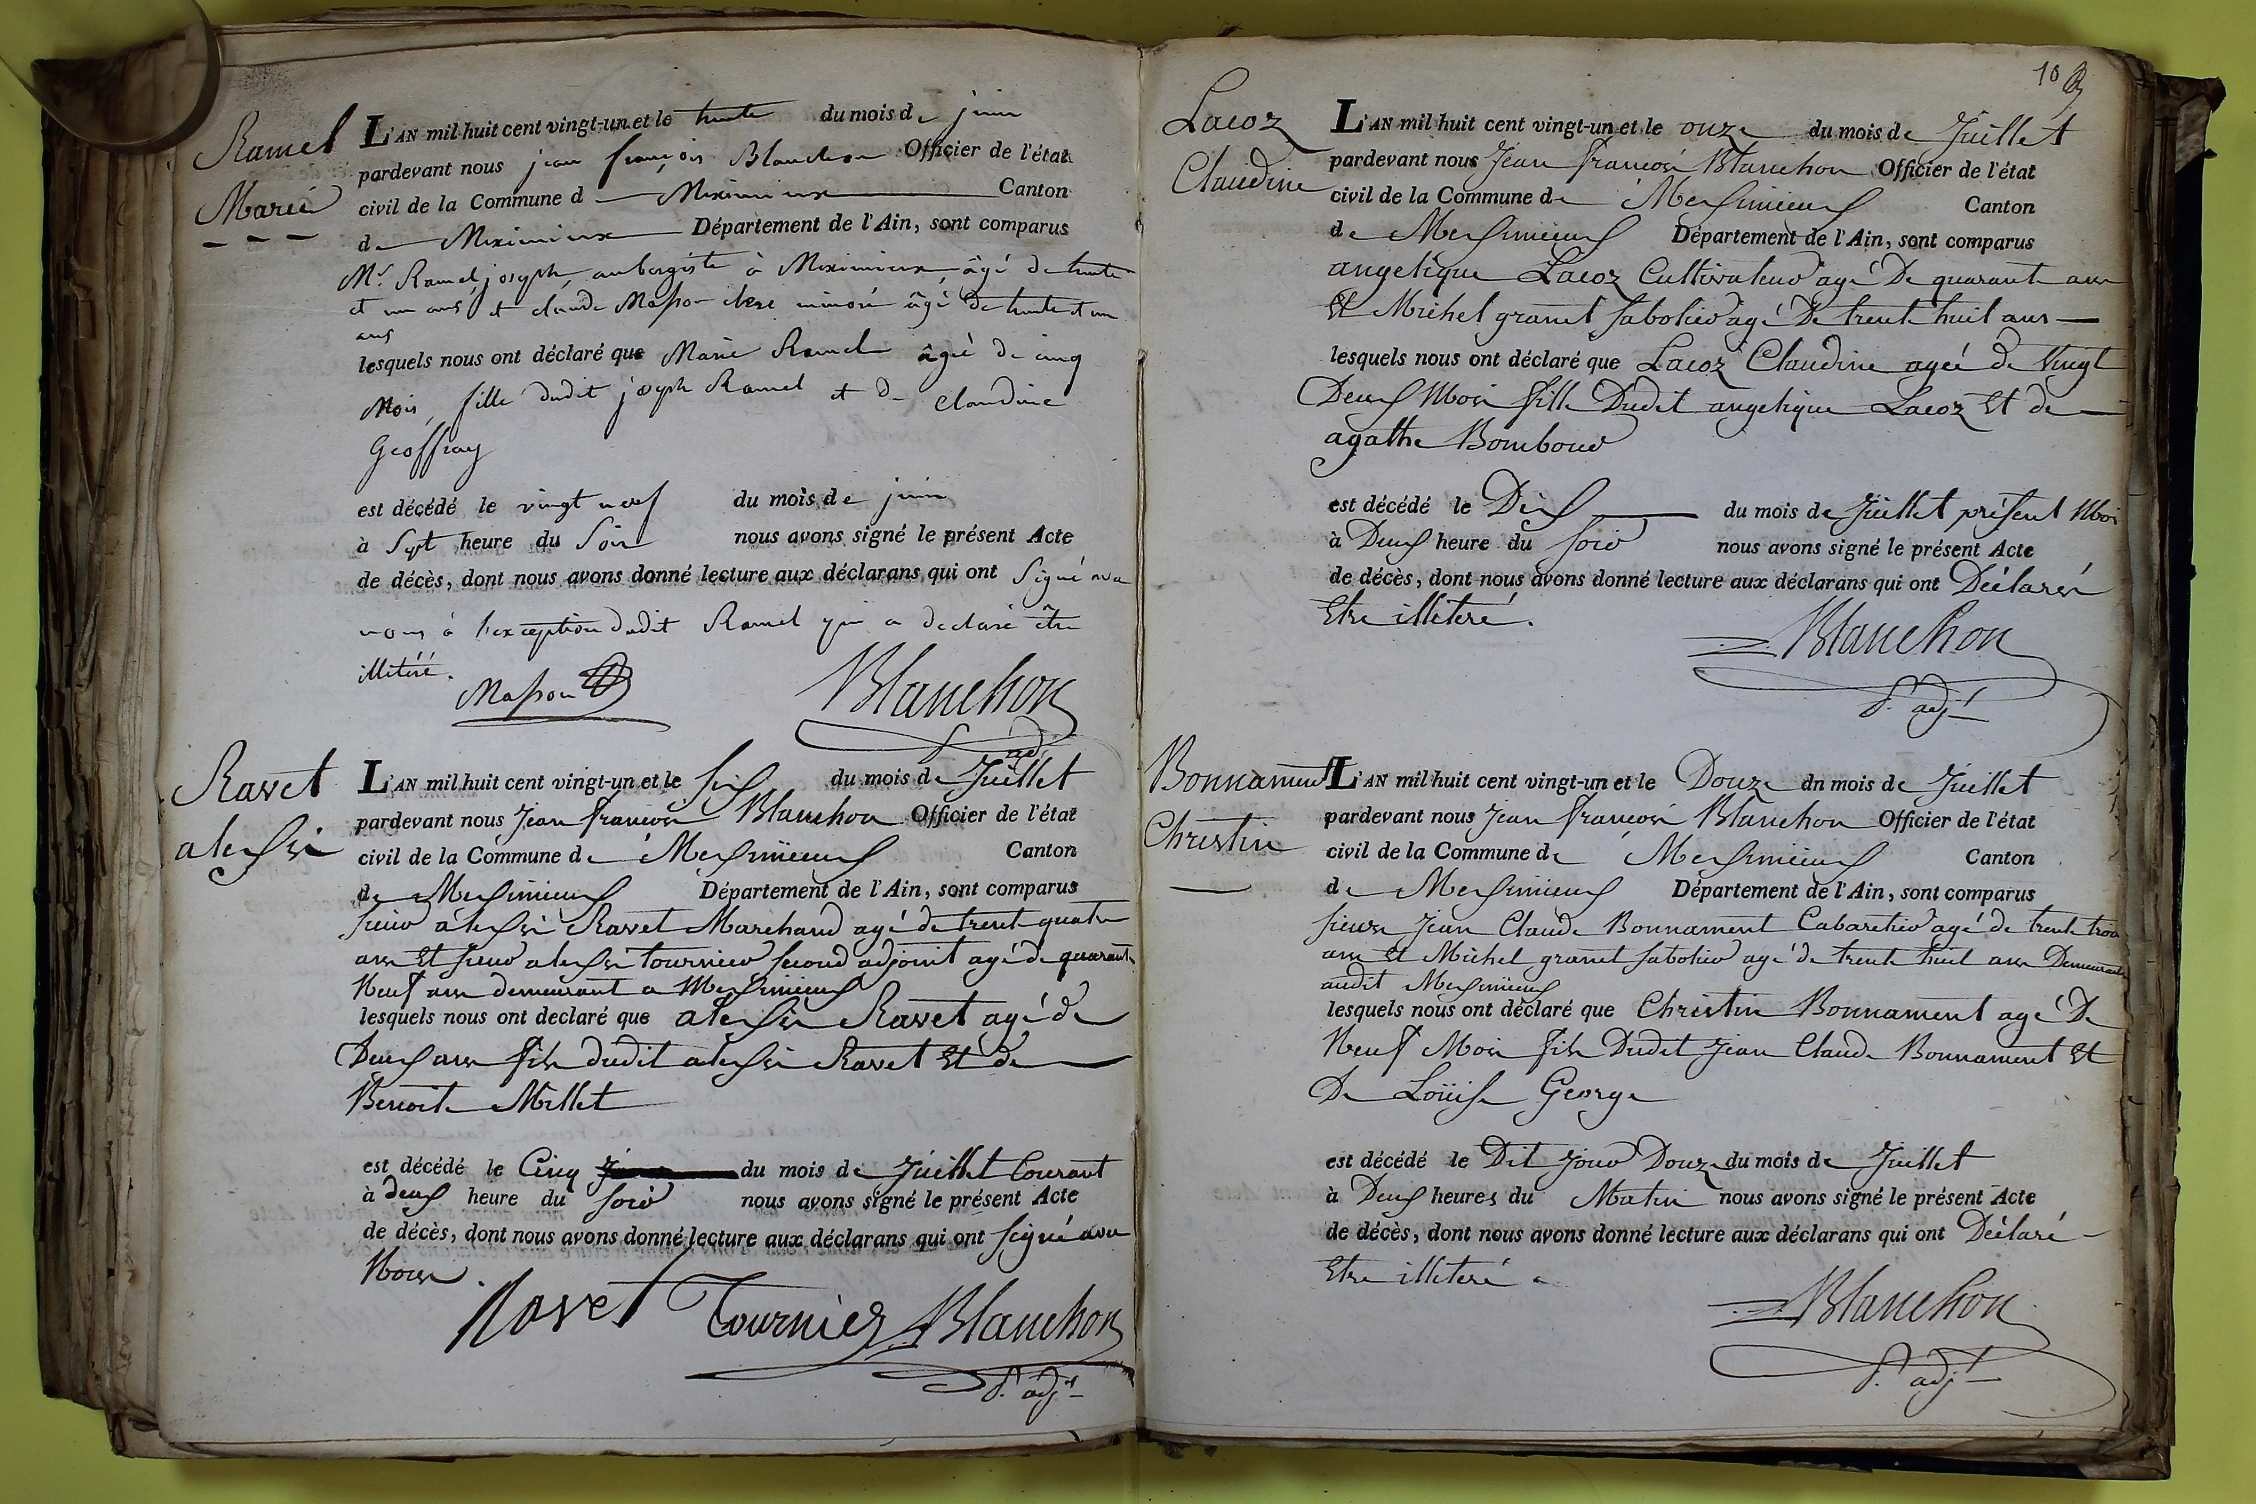 Ramel
Marie
L'AN mil huit cent vingt-un et le trente du mois de juin
pardevant nous jean françois Blanchon Officier de l'état
civil de la Commune d Miximieux Canton
de Miximieux Département de l'Ain, sont comparus
Mr. Ramel joseph, aubergiste à Miximieux âgé de trente
et un ans et claude Masson clerc minoré âgé de trente et un
ans
lesquels nous ont déclaré que Marie Ramel âgée de cinq
Mois, fille dudit joseph Ramel et de Claudine
Geoffray
est décédé le vingt neuf du mois de juin
à Sept heure du Soir nous avons signé le présent Acte
de décès, dont nous avons donné lecture aux déclarans qui ont Signé avec
nous à l'exception dudit Ramel qui a declaré être
illitéré.
Masson Blanchon
adj
Ravet
alexis
L'AN mil huit cent vingt-un et le six du mois de Juillet
pardevant nous Jean francois Blanchon Officier de l'état
civil de la Commune de Mersimieux Canton
de Mersimieux Département de l'Ain, sont comparus
sieur alexis Ravet Marchand agé de trente quatre
ans Et sieur alexis tournier second adjoint agé de quarante
Neuf ans demeurant a Mersimieux
lesquels nous ont declaré que alexis Ravet agé de
Deux ans fils dudit alexis Ravet Et de
Benoite Millet
est décédé le Cinq du mois de Juillet Courant
à deux heure du soir nous avons signé le présent Acte
de décès, dont nous avons donné lecture aux déclarans qui ont signé avec
Nous.
Ravet Tournier Blanchon
S. adjt
10
Lacoz
Claudine
L'AN mil huit cent vingt-un et le onze du mois de Juillet
pardevant nous Jean francois Blanchon Officier de l'état
civil de la Commune de Mersimieux Canton
de Mersimieux Département de l'Ain, sont comparus
angelique Lacoz Cultivateur agé De quarante ans
Et Michel granet sabotier agé De trente huit ans
lesquels nous ont déclaré que Lacoz Claudine agée de Vingt
Deux Mois fille Dudit angelique Lacoz Et de
agathe Bombour
est décédé le Dix du mois de Juillet présent Mois
à Deux heure du soir nous avons signé le présent Acte
de décès, dont nous avons donné lecture aux déclarans qui ont Déclarés
Etre illiteré.
Blanchon
S. adjt
Bonnament
Christin
L'AN mil huit cent vingt-un et le Douze dn mois de Juillet
pardevant nous Jean francois Blanchon Officier de l'état
civil de la Commune de Mersimieux Canton
de Mersimieux Département de l'Ain, sont comparus
sieurs Jean Claude Bonnament Cabaretier agé de trente trois
ans Et Michel granet sabotier agé de trente huit ans Demeurants
audit Mersimieux
lesquels nous ont déclaré que Christin Bonnament agé De
Neuf Mois fils Dudit Jean Claude Bonnament Et
De Loüise George
est décédé le Dit Jour Douze du mois de Juillet
à Deux heures du Matin nous avons signé le présent Acte
de décès, dont nous avons donné lecture aux déclarans qui ont Déclaré
Etre illiteré
Blanchon
S. adjt